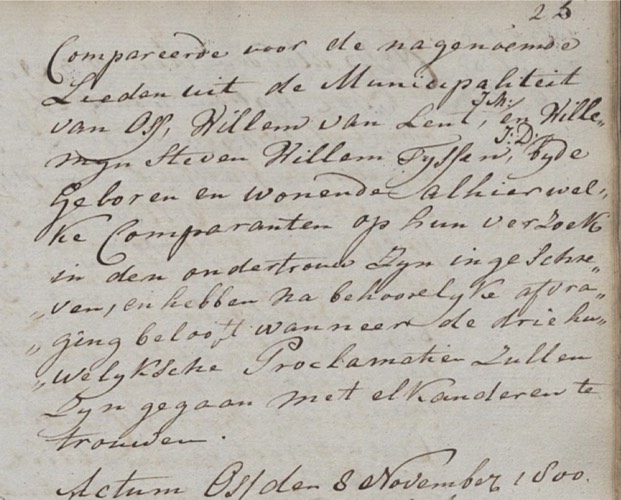 25
Compareerde voor de nagenoemde
Leeden uit de Municipaliteit
van Oss, Willem van Lent, J:M: en Wille„
myn Steven Willem Tyssen, J:D: byde
Geboren en wonende alhier wel„
ke Comparanten op hun verzoek
in den ondertrouw Zyn ingeschre„
„ven, en hebben na behoorelyke afvra„
„ging belooft wanneer de drie hu„
„welyksche Proclamatien Zullen
Zyn gegaan met elkanderen te
trouwen.
Actum Oss den 8 November 1800.